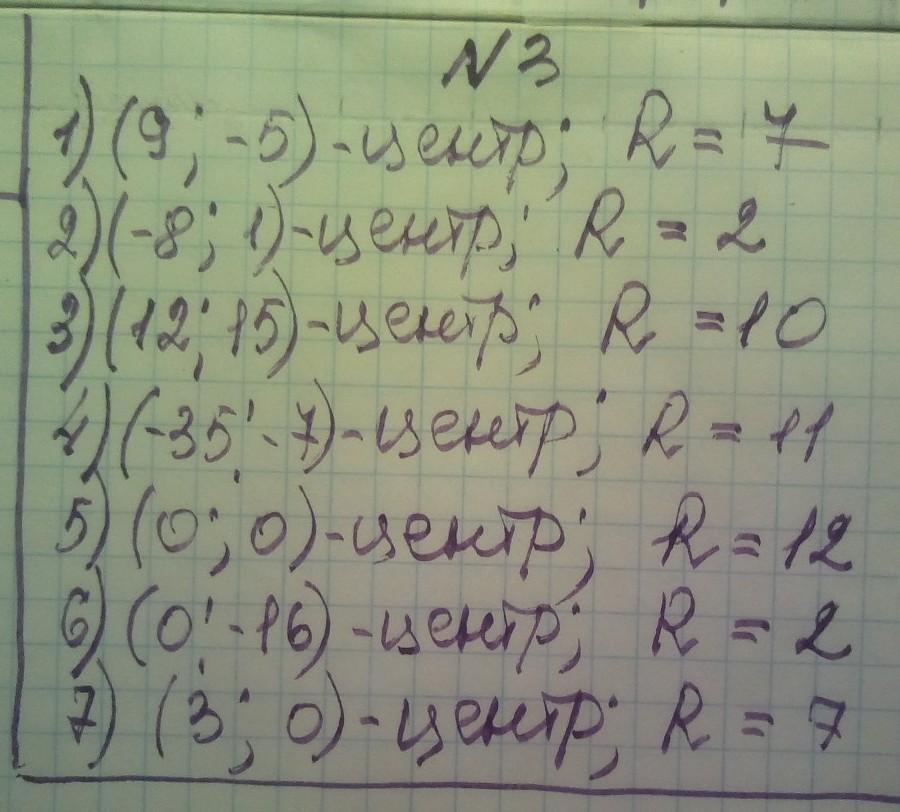 N3
1) (9; -5) - центр; R = 7
2) (-8; 1) - центр; R = 2
3) (12; 15) - центр; R = 10
4) (-35; -7) - центр; R = 11
5) (0; 0) - центр; R = 12
6) (0; -16) - центр; R = 2
7) (3; 0) - центр; R = 7